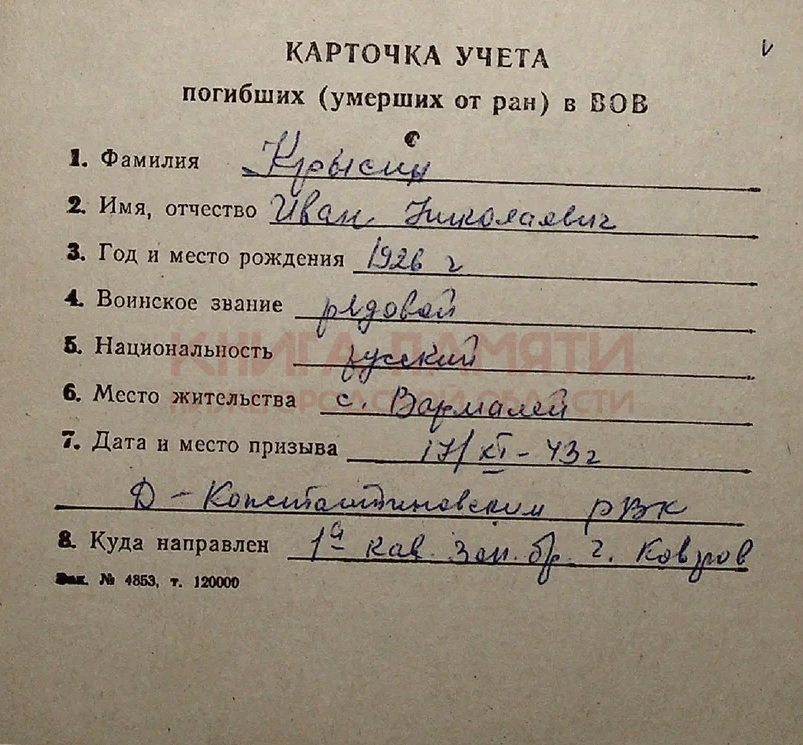 КАРТОЧКА УЧЕТА
погибших (умерших от ран) в ВОВ
1. Фамилия Крысин
2. Имя, отчество Иван Николаевич
3. Год и место рождения 1926 г
4. Воинское звание рядовой
5. Национальность русский
КНИГА ПАМЯТИ
6. Место жительства с. Вармалей
НИЖЕГОРОДСКОЙ ОБЛАСТИ
7. Дата и место призыва 17/XI-43г
Д-Константиновским РВК
8. Куда направлен 1а кав. зап. бр. г. Ковров
Зак. № 4853, т. 120000